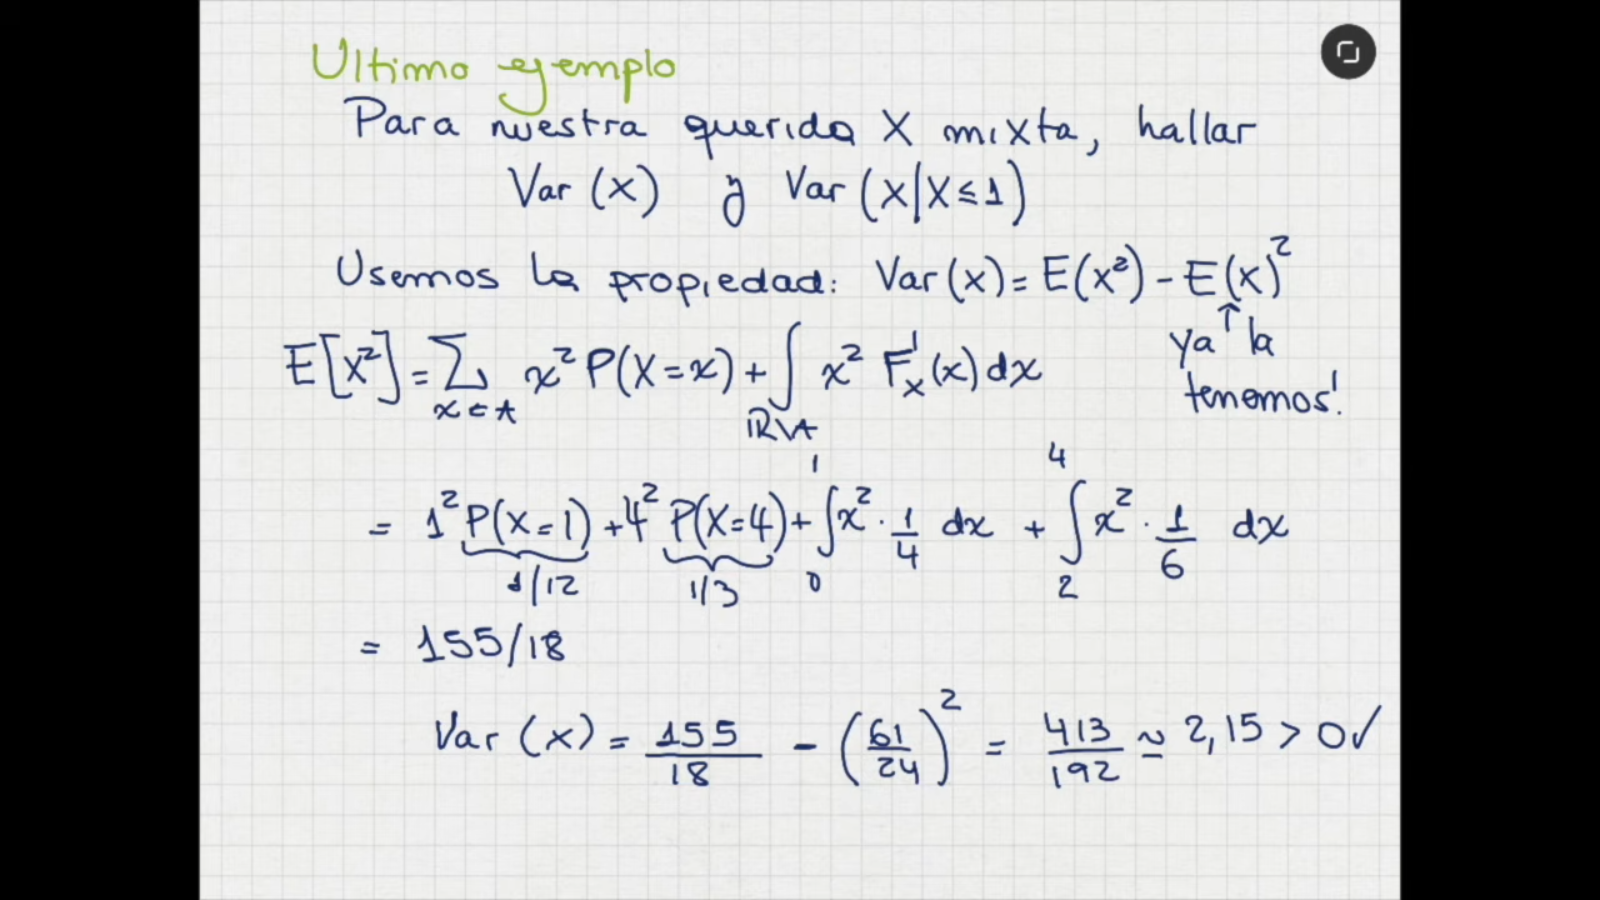 Ultimo ejemplo
Para nuestra querida X mixta, hallar
Var (X) y Var (X|X≤1)
Usemos la propiedad: Var(x) = E(x²) - E(x)²
ya ↑ la
tenemos!
E[X²] = Σ x² P(X=x) + ∫ x² F'ₓ(x) dx
x∈A ℝ\A
= 1² P(X=1) + 4² P(X=4) + ∫₀¹ x² · 1/4 dx + ∫₂⁴ x² · 1/6 dx
1/12 1/3
= 155/18
Var (x) = 155/18 - (61/24)² = 413/192 ≃ 2,15 > 0 ✓